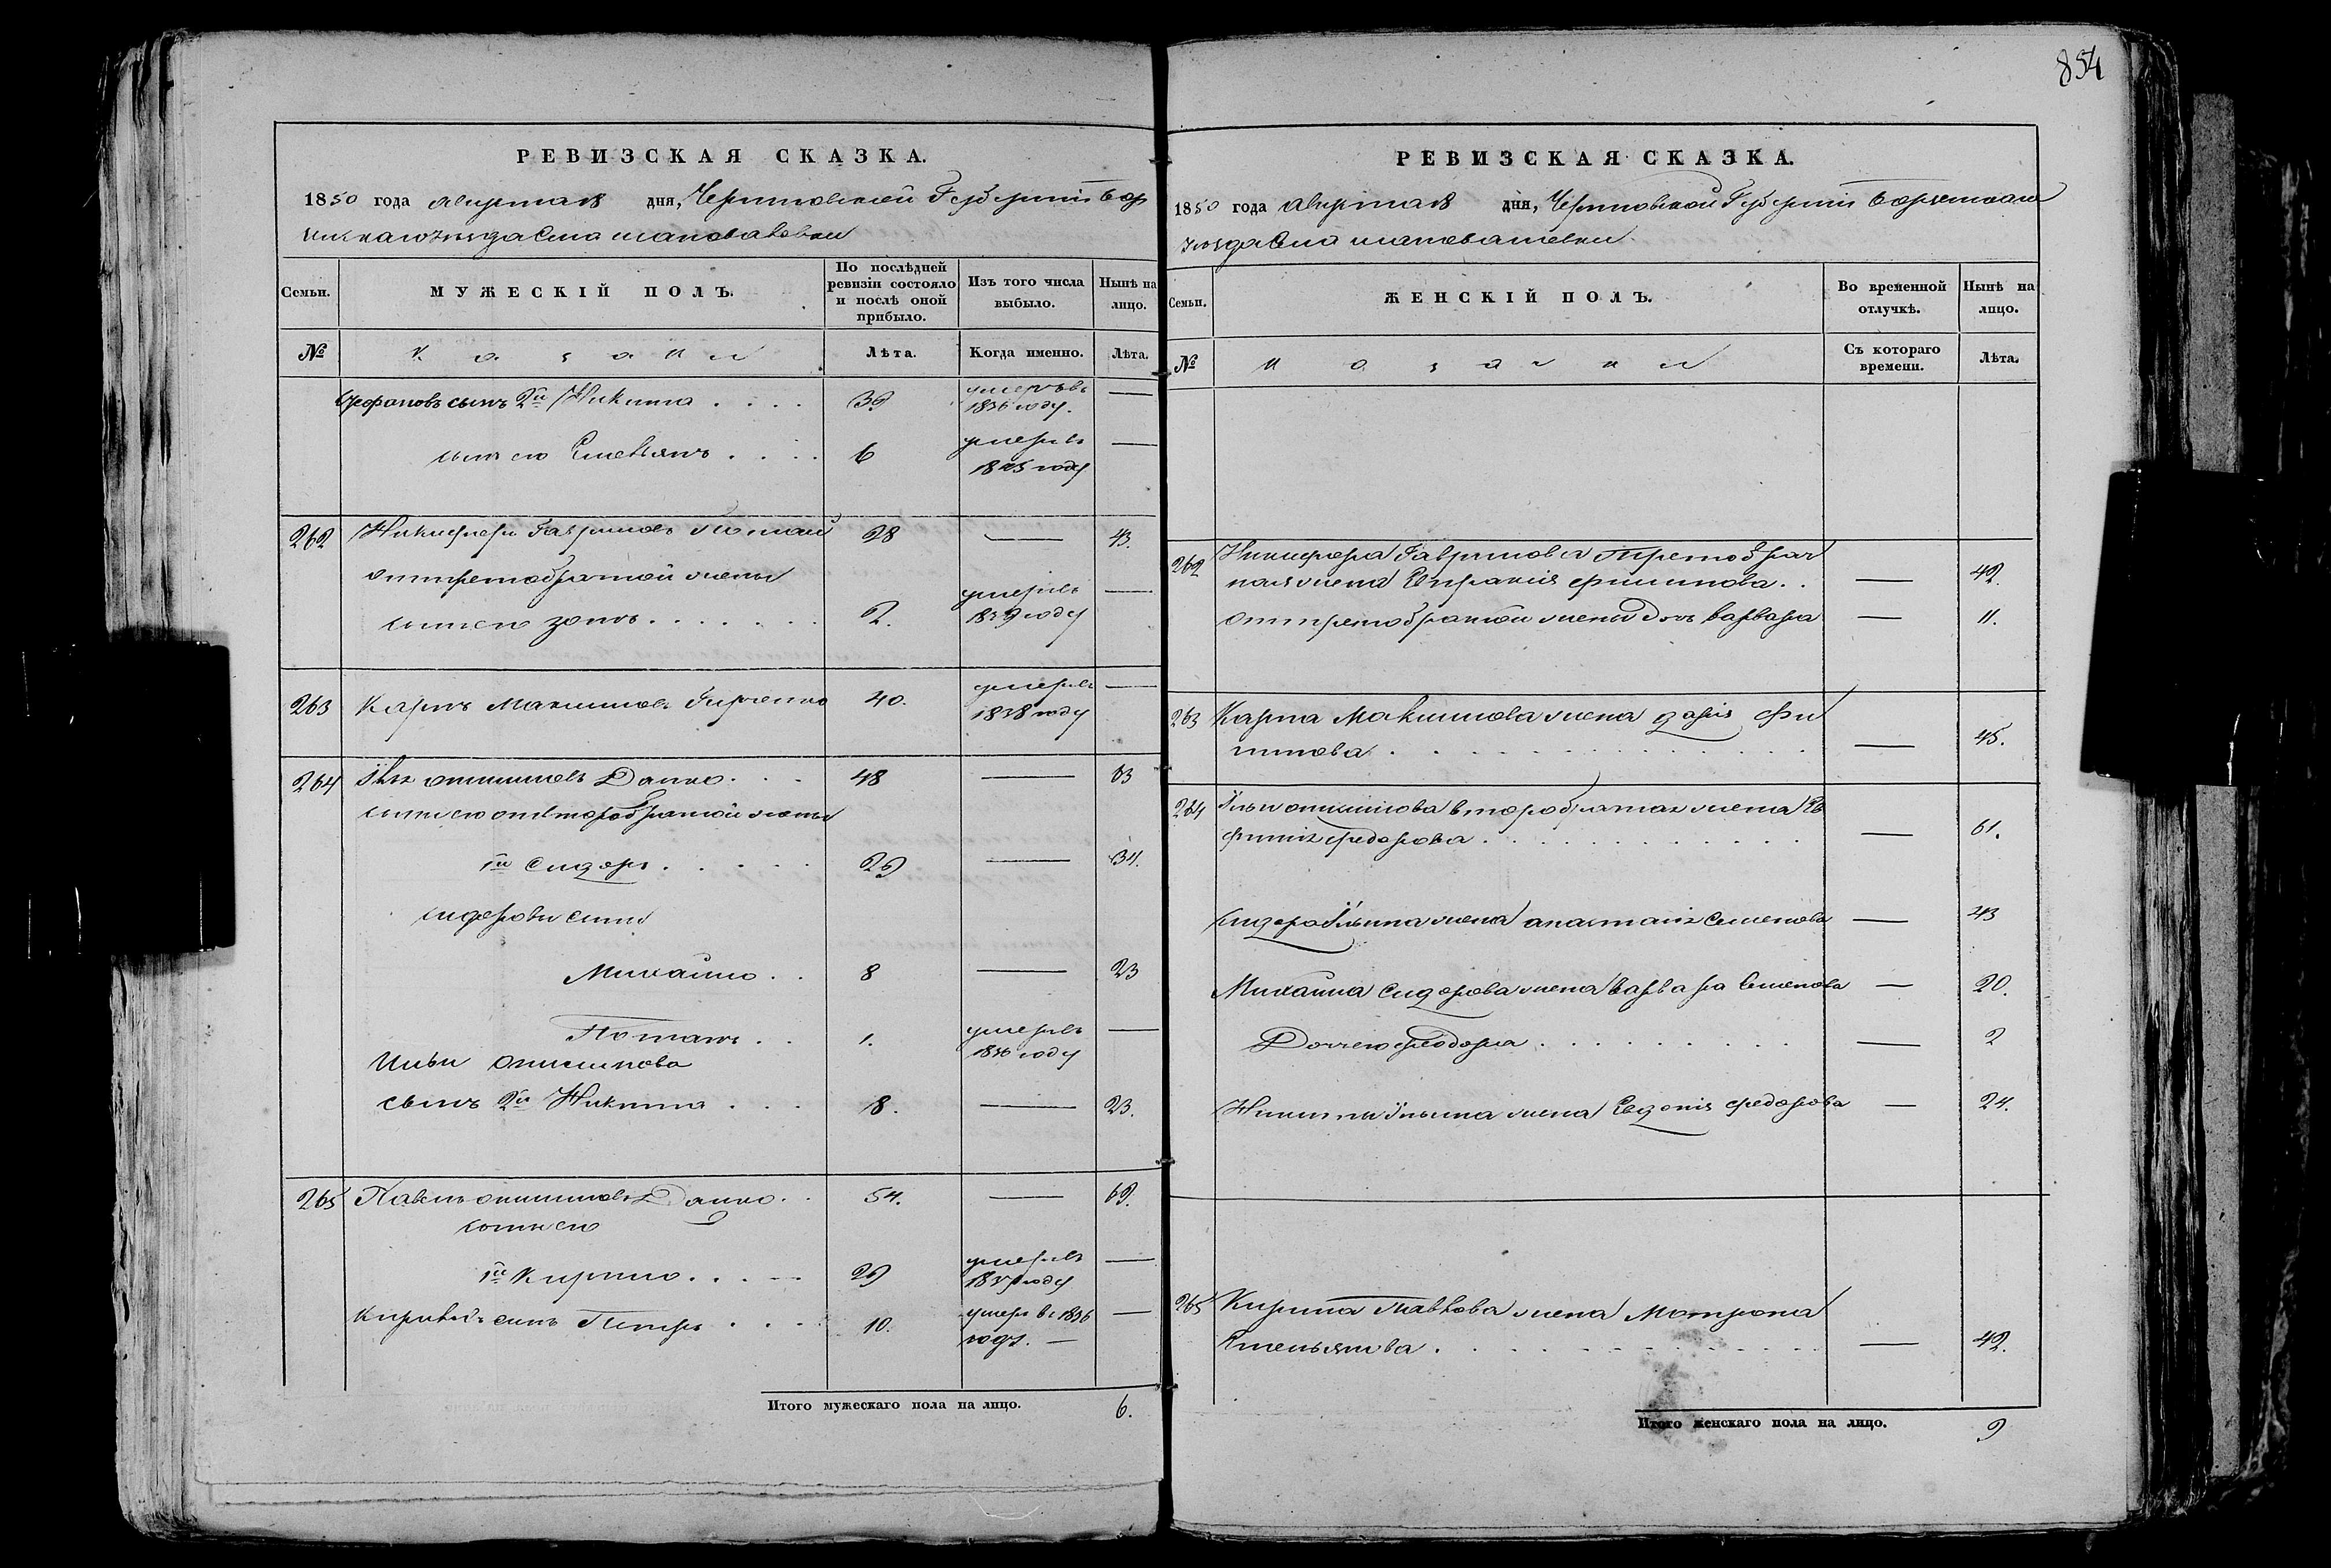 854
РЕВИЗСКАЯ СКАЗКА.
1850 года августа 18 дня, Черниговской Губерніи Бор
зенскаго уезда Села шаповаловки
Семьи. МУЖЕСКІЙ ПОЛЪ. По послѣдней ревизіи состояло и послѣ оной прибыло. Изъ того числа выбыло. Нынѣ на лицо.
№ козаки Лѣта. Когда именно. Лѣта.
сынъ 2й Никита 39 умеръ въ 1836 году. —
сынъ его Емельянъ 6 умеръ въ году —
262 Никифоръ Гавриловъ 28 — 43.
от третобрачной жены
сынъ его 2. умеръ въ 1839 году —
263 Карпъ Максимовъ 40. умеръ въ 1838 году —
264 Онисимовъ Данко 48 — 63
сынъ его от второбрачной жены
1й Сидоръ 29 — 34.
сидоровы сыны
Михайло 8 — 23
Потапъ 1. умеръ въ 1836 году —
Ильи Онисимова
сынъ 2й Никита 8. — 23.
265 Павелъ онисимовъ Данко 54. — 69.
сынъ его
1й Кирило 29 умеръ въ году —
сынъ Петръ 10. умеръ въ 1836 году. —
Итого мужескаго пола на лицо. 6.
РЕВИЗСКАЯ СКАЗКА.
1850 года августа 18 дня, Черниговской Губерніи Борзенскаго
уезда Села шаповаловки.
Семьи. ЖЕНСКІЙ ПОЛЪ. Во временной отлучкѣ. Нынѣ на лицо.
№ козаки Съ котораго времени. Лѣта.
262 Никифора Гаврилова третобрач
ная жена филипова — 42.
от третобрачной жены дочь варвара — 11.
263 Карпа Максимова жена дарія фи
липова — 45.
264 Ильи онисимова второбрачная жена Ев
фимія федорова — 61.
сидора Ильина жена анастасія Семенова — 43
Михайла Сидорова жена варвара Семенова — 20.
Дочь его феодора — 2
Никиты Ильина жена Евдокія федорова — 24.
265 Кирила Павлова жена Матрона
Емельянова — 42.
Итого женскаго пола на лицо. 9